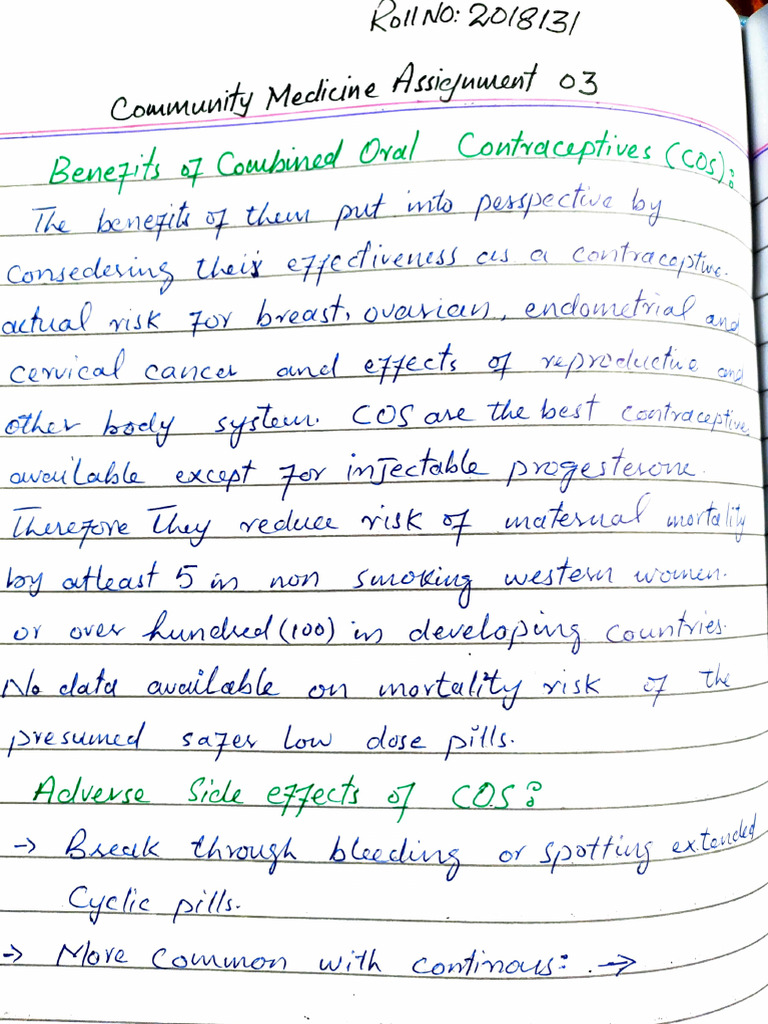 Roll NO: 2018131
Community Medicine Assignment 03
Benefits of Combined Oral Contraceptives (COs):
The benefits of them put into perspective by
consedering their effectiveness as a contraceptive.
actual risk for breast, ovarian, endometrial and
cervical cancer and effects of reproductive and
other body system. COS are the best contraceptive
available except for injectable progesterone.
Therefore They reduce risk of maternal mortality
by atleast 5 in non smoking western women.
or over hundred (100) in developing countries.
No data available on mortality risk of the
presumed safer low dose pills.
Adverse Side effects of COS:
→ Break through bleeding or spotting extended
Cyclic pills.
→ More common with continous: →